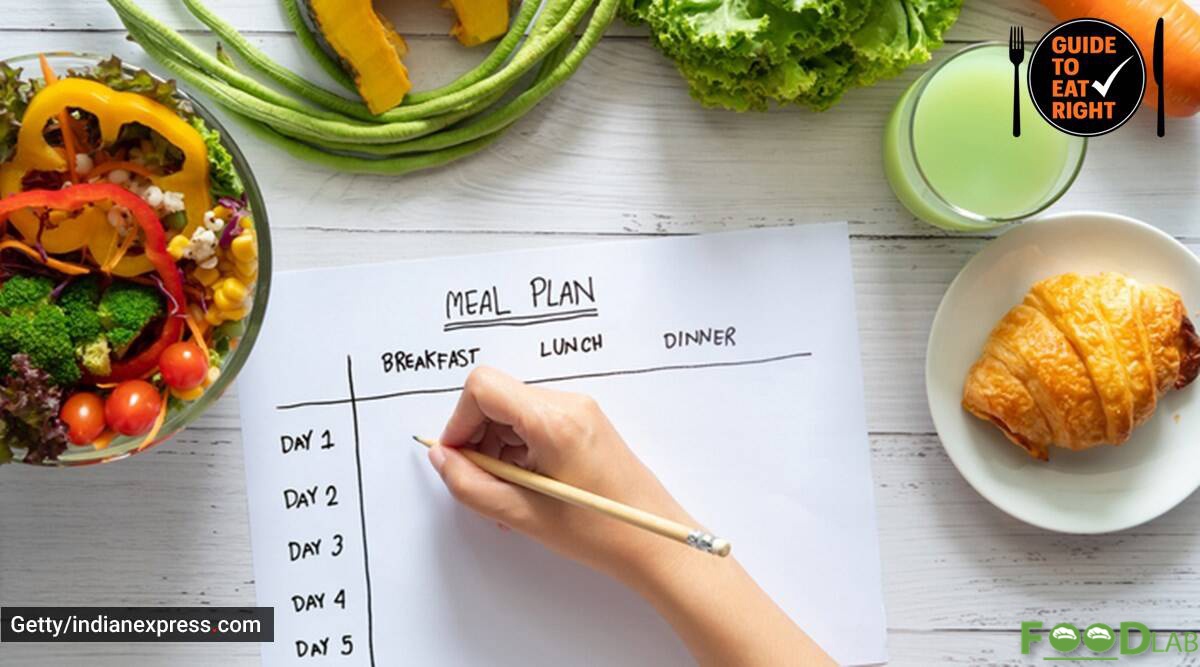 GUIDE
TO
EAT
RIGHT
MEAL PLAN
BREAKFAST LUNCH DINNER
DAY 1
DAY 2
DAY 3
DAY 4
DAY 5
Getty/indianexpress.com
FOODLAB